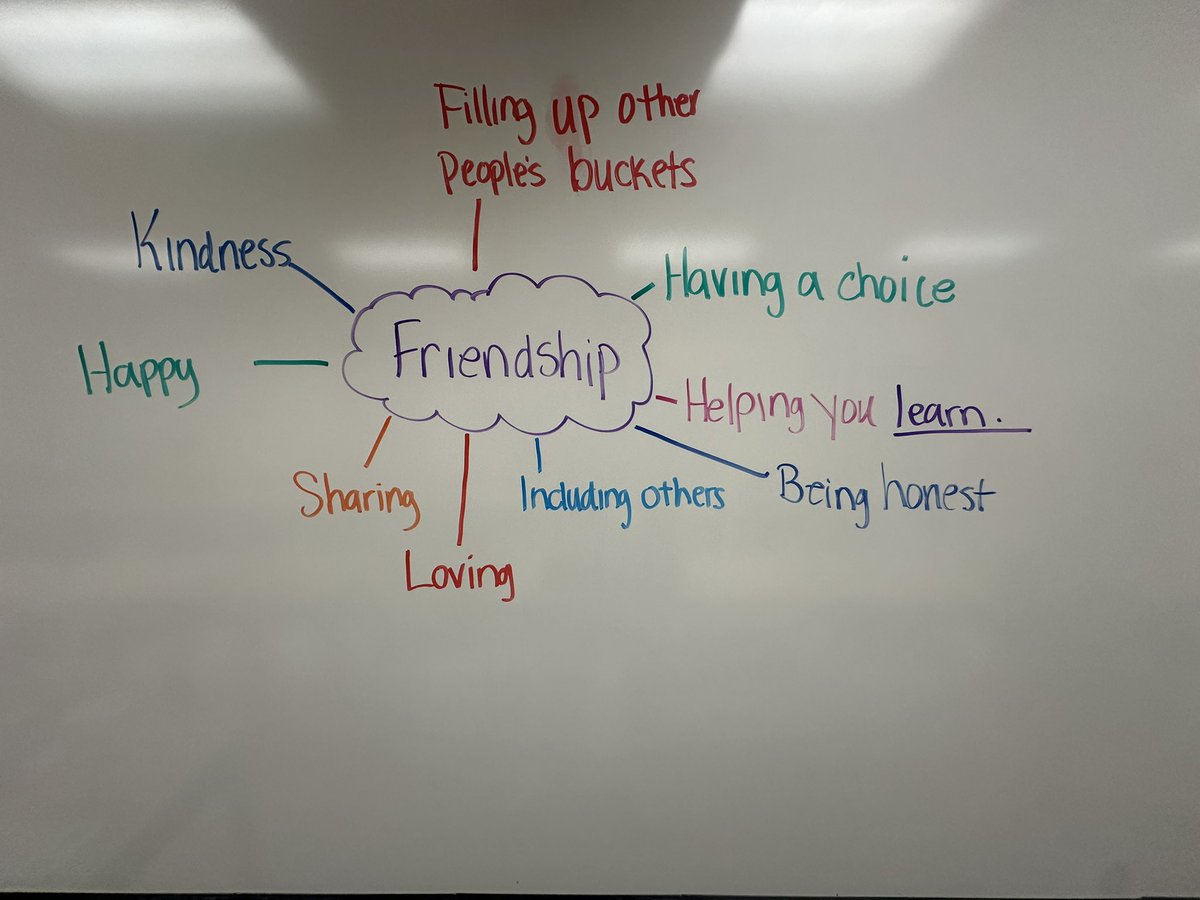 Filling up other
People's buckets
Kindness
Having a choice
Friendship
Happy
Helping you learn.
Sharing
Including others
Being honest
Loving